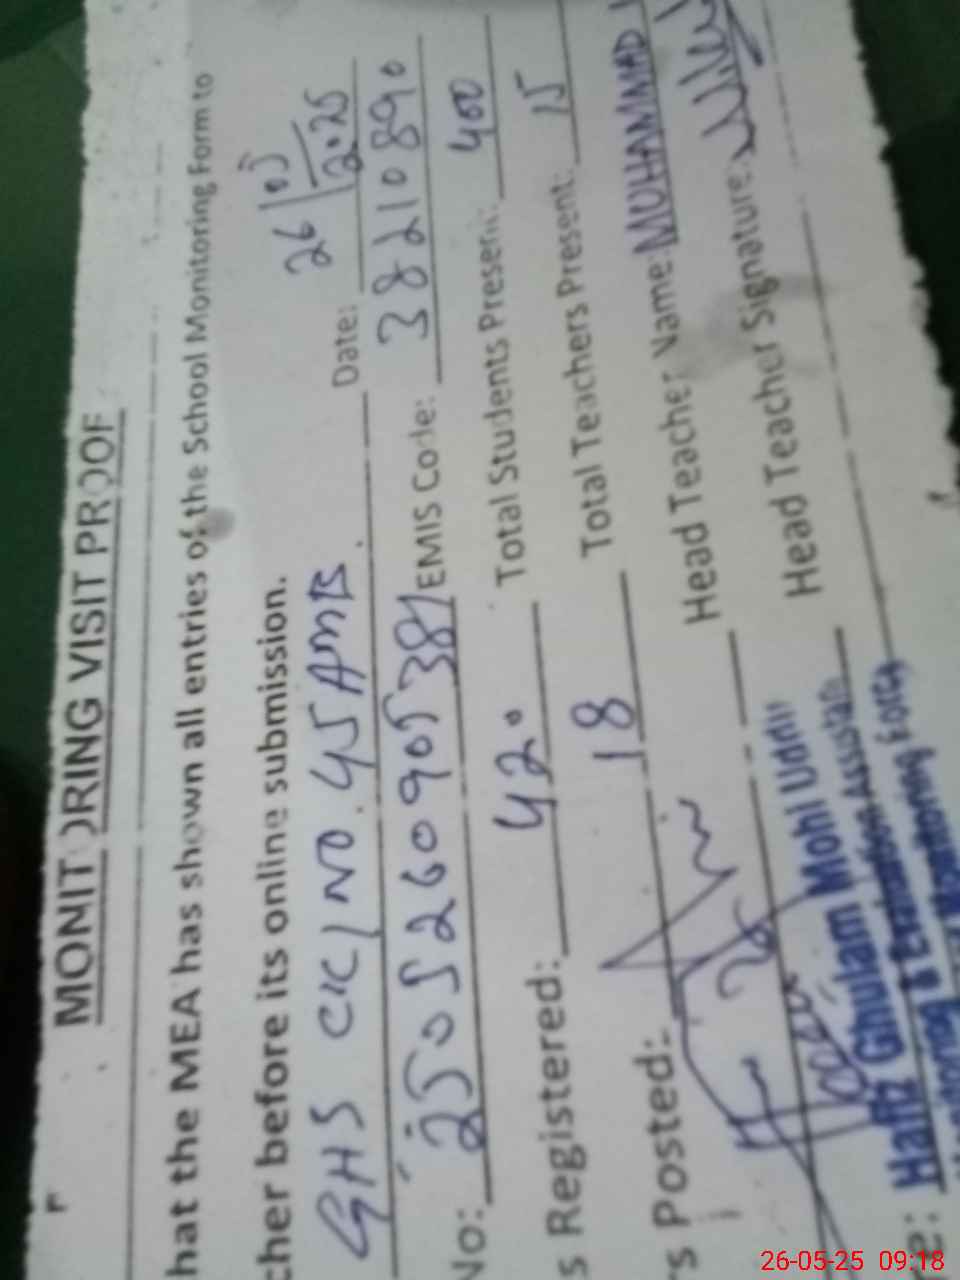 MONITORING VISIT PROOF
hat the MEA has shown all entries of the School Monitoring Form to
cher before its online submission.
GHS Date: 26/05/2025
No: EMIS Code: 38210890
s Registered: 420 Total Students Present: 400
s Posted: 18 Total Teachers Present: 15
Head Teacher Name: MUHAMMAD
Head Teacher Signature:
e: Hafiz Ghulam Mohi Uddin
Monitoring & Evaluation Assistant
Monitoring Force
26-05-25 09:18